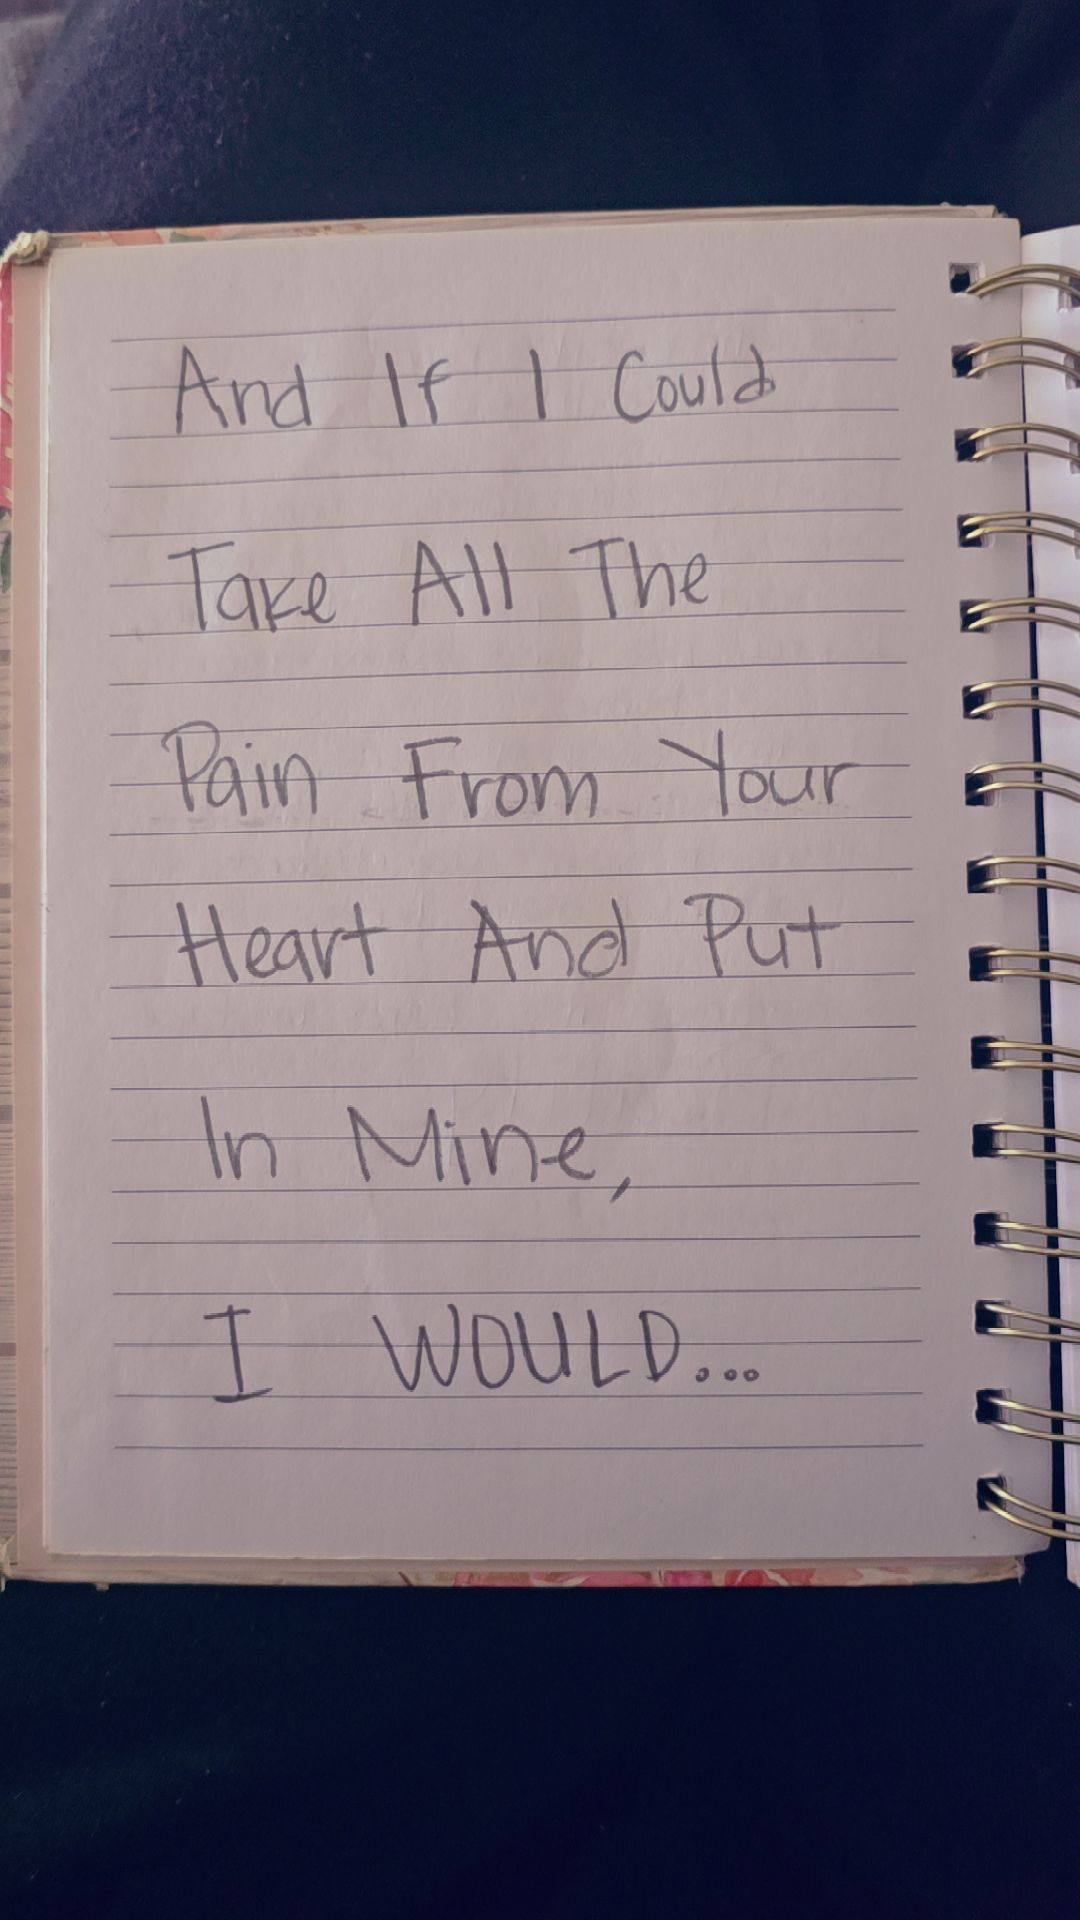 And If I Could
Take All The
Pain From Your
Heart And Put
In Mine,
I WOULD...